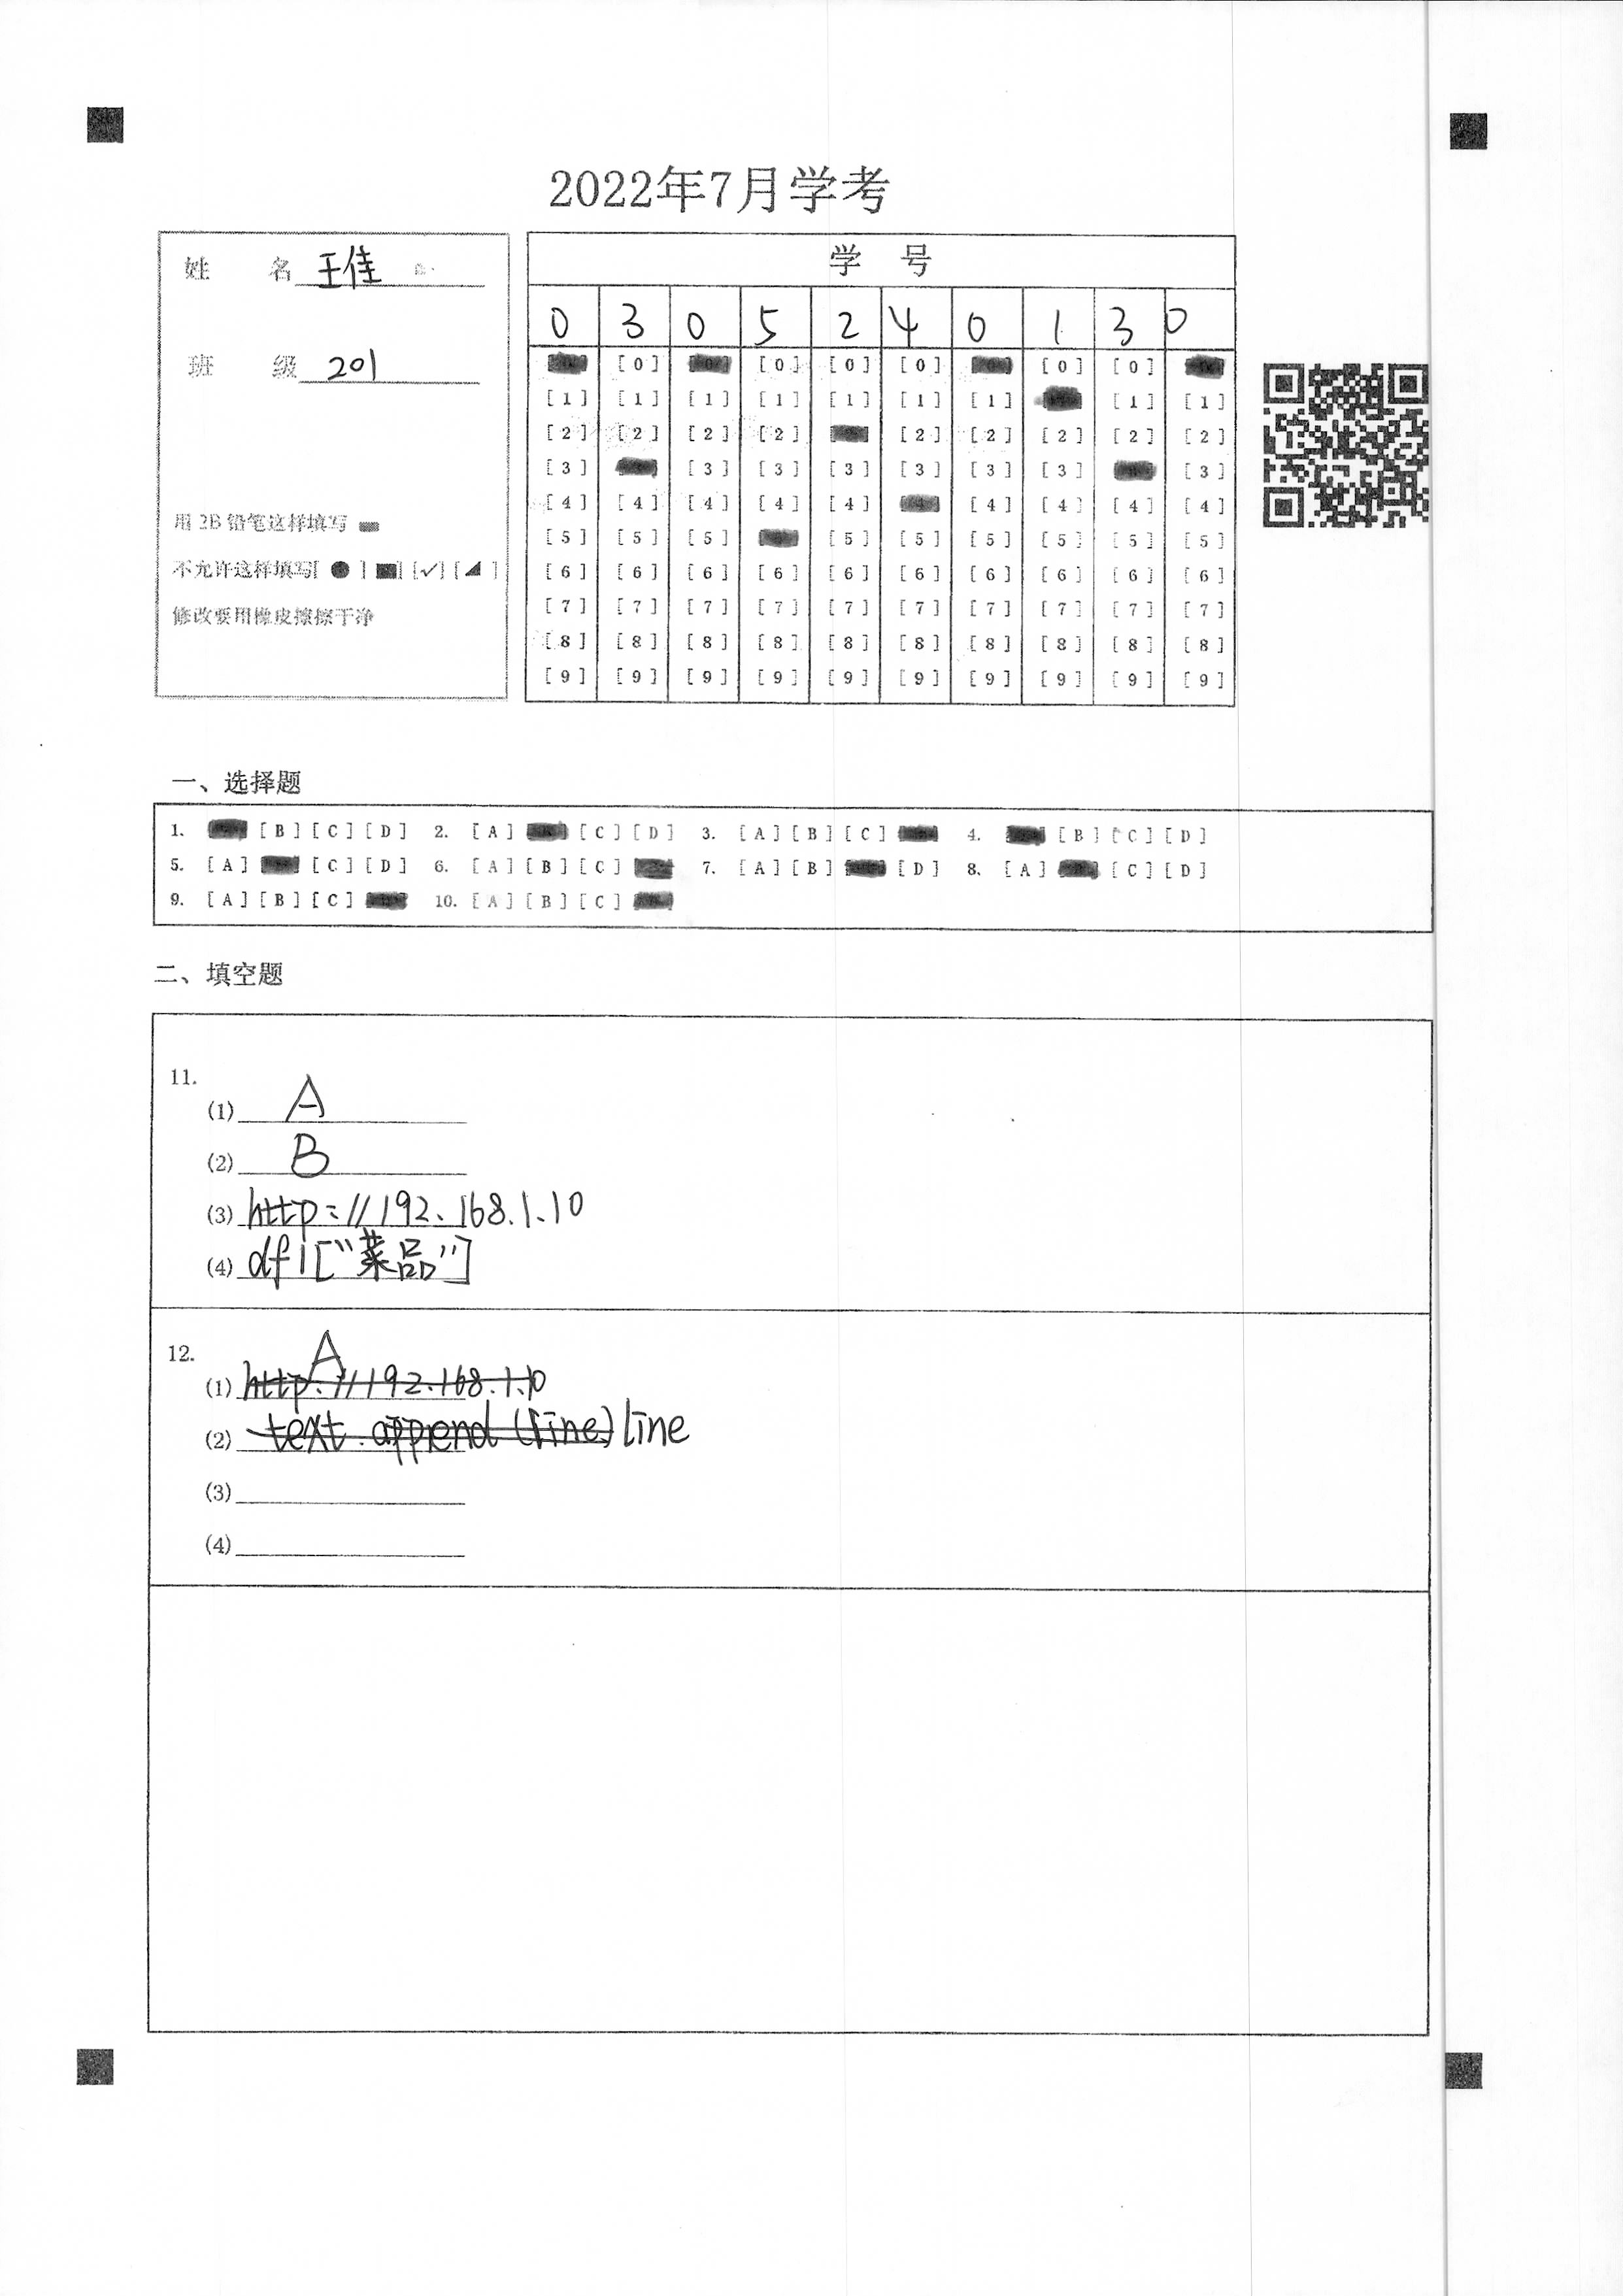 2022年7月学考
姓 名 王佳
班 级 201
用 2B 铅笔这样填写
不允许这样填写[ ● ] [■] [✓] [◢ ]
修改要用橡皮擦擦干净
学 号
0 3 0 5 2 4 0 1 3 0
[0] [0] [0] [0] [0] [0]
[1] [1] [1] [1] [1] [1] [1] [1] [1]
[2] [2] [2] [2] [2] [2] [2] [2] [2]
[3] [3] [3] [3] [3] [3] [3] [3]
[4] [4] [4] [4] [4] [4] [4] [4] [4]
[5] [5] [5] [5] [5] [5] [5] [5] [5]
[6] [6] [6] [6] [6] [6] [6] [6] [6] [6]
[7] [7] [7] [7] [7] [7] [7] [7] [7] [7]
[8] [8] [8] [8] [8] [8] [8] [8] [8] [8]
[9] [9] [9] [9] [9] [9] [9] [9] [9] [9]
一、选择题
1. [B] [C] [D] 2. [A] [C] [D] 3. [A] [B] [C] 4. [B] [C] [D]
5. [A] [C] [D] 6. [A] [B] [C] 7. [A] [B] [D] 8. [A] [C] [D]
9. [A] [B] [C] 10. [A] [B] [C]
二、填空题
11.
(1) A
(2) B
(3) http://192.168.1.10
(4) df1["菜品"]
12.
A
(1) http://192.168.1.10
(2) text.append(line) line
(3)
(4)